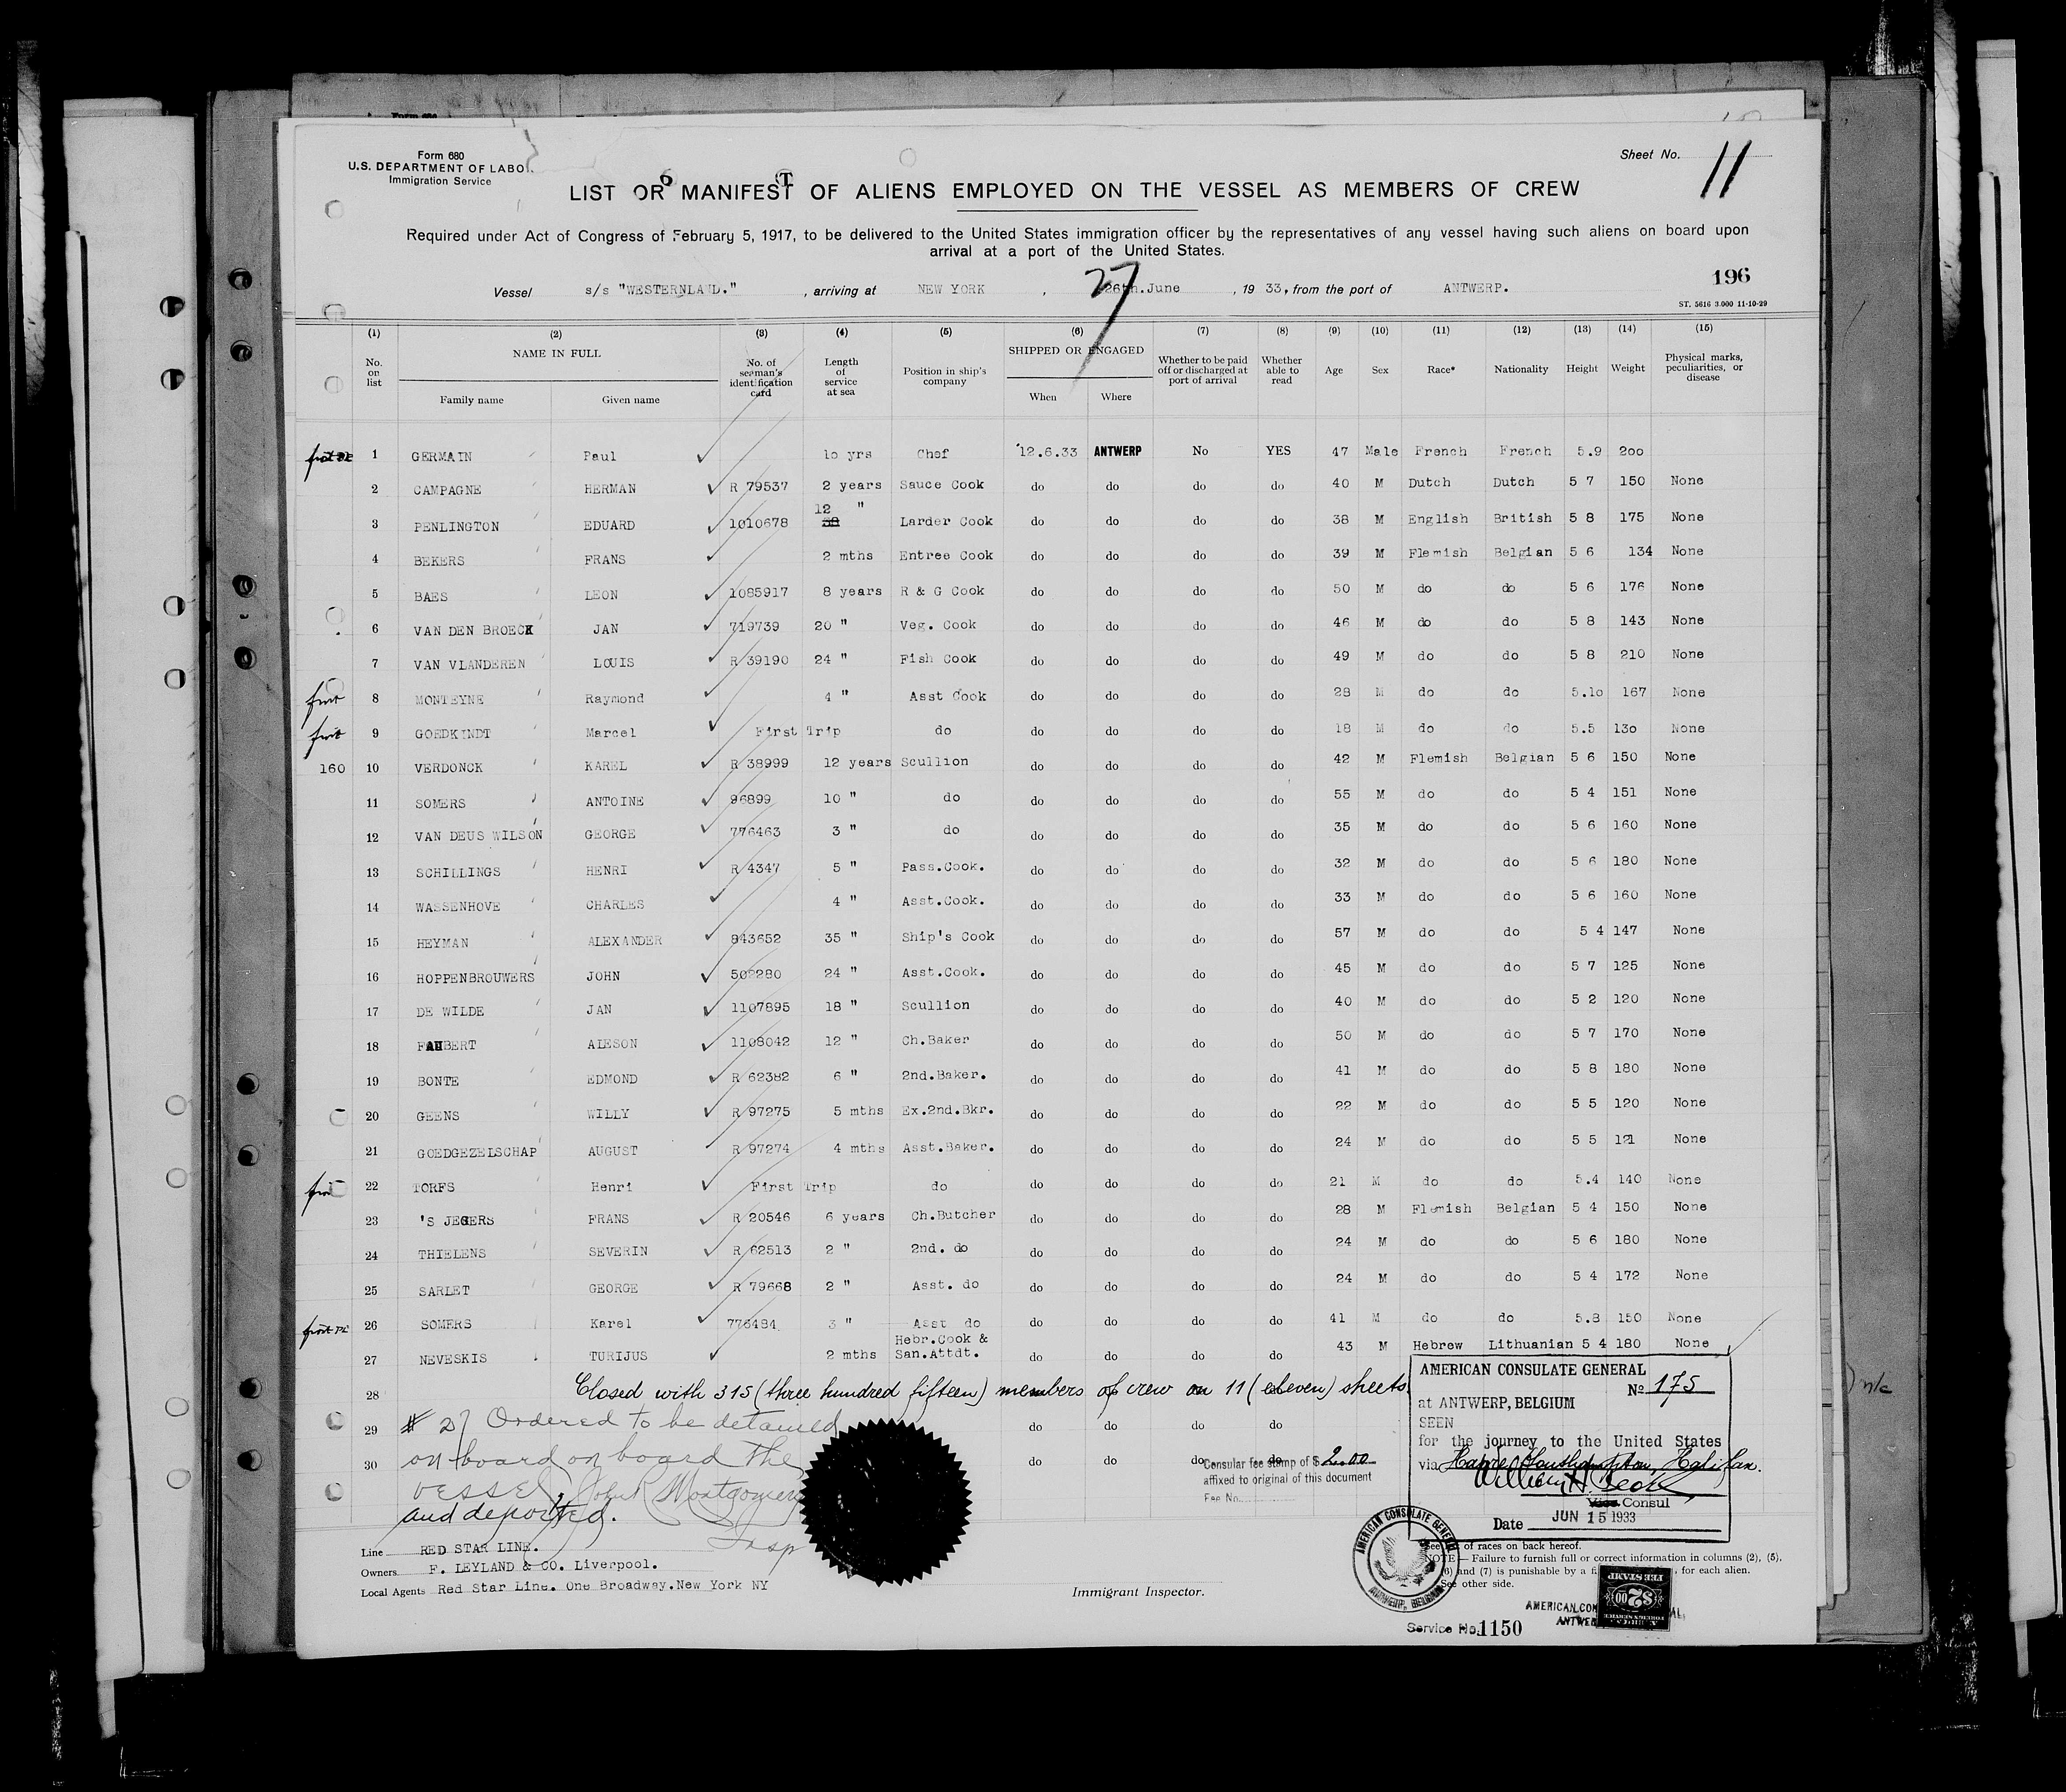 Form 680
U.S. DEPARTMENT OF LABOR
Immigration Service
Sheet No. 11
LIST OR MANIFEST OF ALIENS EMPLOYED ON THE VESSEL AS MEMBERS OF CREW
Required under Act of Congress of February 5, 1917, to be delivered to the United States immigration officer by the representatives of any vessel having such aliens on board upon
arrival at a port of the United States.
196
Vessel s/s "WESTERNLAND." , arriving at NEW YORK , 26th.June 27 , 19 33, from the port of ANTWERP.
ST. 5616 3.000 11-10-29
(1) (2) (3) (4) (5) (6) (7) (8) (9) (10) (11) (12) (13) (14) (15)
No. on list NAME IN FULL Family name Given name No. of seaman's identification card Length of service at sea Position in ship's company SHIPPED OR ENGAGED When Where Whether to be paid off or discharged at port of arrival Whether able to read Age Sex Race* Nationality Height Weight Physical marks, peculiarities, or disease
1 GERMAIN Paul 1o yrs Chef 12.6.33 ANTWERP No YES 47 Male French French 5.9 2oo
2 CAMPAGNE HERMAN R 79537 2 years Sauce Cook do do do do 40 M Dutch Dutch 5 7 150 None
3 PENLINGTON EDUARD 1010678 12 " Larder Cook do do do do 38 M English British 5 8 175 None
4 BEKERS FRANS 2 mths Entree Cook do do do do 39 M Flemish Belgian 5 6 134 None
5 BAES LEON 1085917 8 years R & G Cook do do do do 50 M do do 5 6 176 None
6 VAN DEN BROECK JAN 719739 20 " Veg. Cook do do do do 46 M do do 5 8 143 None
7 VAN VLANDEREN LOUIS R 39190 24 " Fish Cook do do do do 49 M do do 5 8 210 None
8 MONTEYNE Raymond 4 " Asst Cook do do do do 28 M do do 5.1o 167 None
9 GOEDKINDT Marcel First Trip do do do do do 18 M do do 5.5 13o None
160 10 VERDONCK KAREL R 38999 12 years Scullion do do do do 42 M Flemish Belgian 5 6 150 None
11 SOMERS ANTOINE 96899 10 " do do do do do 55 M do do 5 4 151 None
12 VAN DEUS WILSON GEORGE 776463 3 " do do do do do 35 M do do 5 6 160 None
13 SCHILLINGS HENRI R 4347 5 " Pass.Cook. do do do do 32 M do do 5 6 180 None
14 WASSENHOVE CHARLES 4 " Asst.Cook. do do do do 33 M do do 5 6 160 None
15 HEYMAN ALEXANDER 843652 35 " Ship's Cook do do do do 57 M do do 5 4 147 None
16 HOPPENBROUWERS JOHN 502280 24 " Asst.Cook. do do do do 45 M do do 5 7 125 None
17 DE WILDE JAN 1107895 18 " Scullion do do do do 40 M do do 5 2 120 None
18 FAUBERT ALESON 1108042 12 " Ch.Baker do do do do 50 M do do 5 7 170 None
19 BONTE EDMOND R 62382 6 " 2nd.Baker. do do do do 41 M do do 5 8 180 None
20 GEENS WILLY R 97275 5 mths Ex.2nd.Bkr. do do do do 22 M do do 5 5 120 None
21 GOEDGEZELSCHAP AUGUST R 97274 4 mths Asst.Baker. do do do do 24 M do do 5 5 121 None
22 TORFS Henri First Trip do do do do do 21 M do do 5.4 140 None
23 'S JEGERS FRANS R 20546 6 years Ch.Butcher do do do do 28 M Flemish Belgian 5 4 150 None
24 THIELENS SEVERIN R 62513 2 " 2nd. do do do do do 24 M do do 5 6 180 None
25 SARLET GEORGE R 79668 2 " Asst. do do do do do 24 M do do 5 4 172 None
26 SOMERS Karel 776484 3 " Asst do do do do do 41 M do do 5.8 150 None
27 NEVESKIS TURIJUS 2 mths Hebr.Cook & San.Attdt. do do do do 43 M Hebrew Lithuanian 5 4 180 None
28 Closed with 315 (three hundred fifteen) members of crew on 11 (eleven) sheets.
29 # 27 Ordered to be detained do do do do
30 on board on board the do do do do
vessel, John R Montgomery
and deported.
Insp
Consular fee stamp of $ 2.00
affixed to original of this document
Fee No.
AMERICAN CONSULATE GENERAL
No 175
at ANTWERP, BELGIUM
SEEN
for the journey to the United States
via Havre, Southampton, Halifax.
William H. Beck
Vice Consul
Date JUN 15 1933
Line RED STAR LINE.
Owners F. LEYLAND & CO. Liverpool.
Local Agents Red Star Line. One Broadway.New York NY
Immigrant Inspector.
AMERICAN CONSULATE GENERAL
ANTWERP, BELGIUM
of races on back hereof.
NOTE — Failure to furnish full or correct information in columns (2), (5),
(6) and (7) is punishable by a for each alien.
See other side.
Service No. 1150